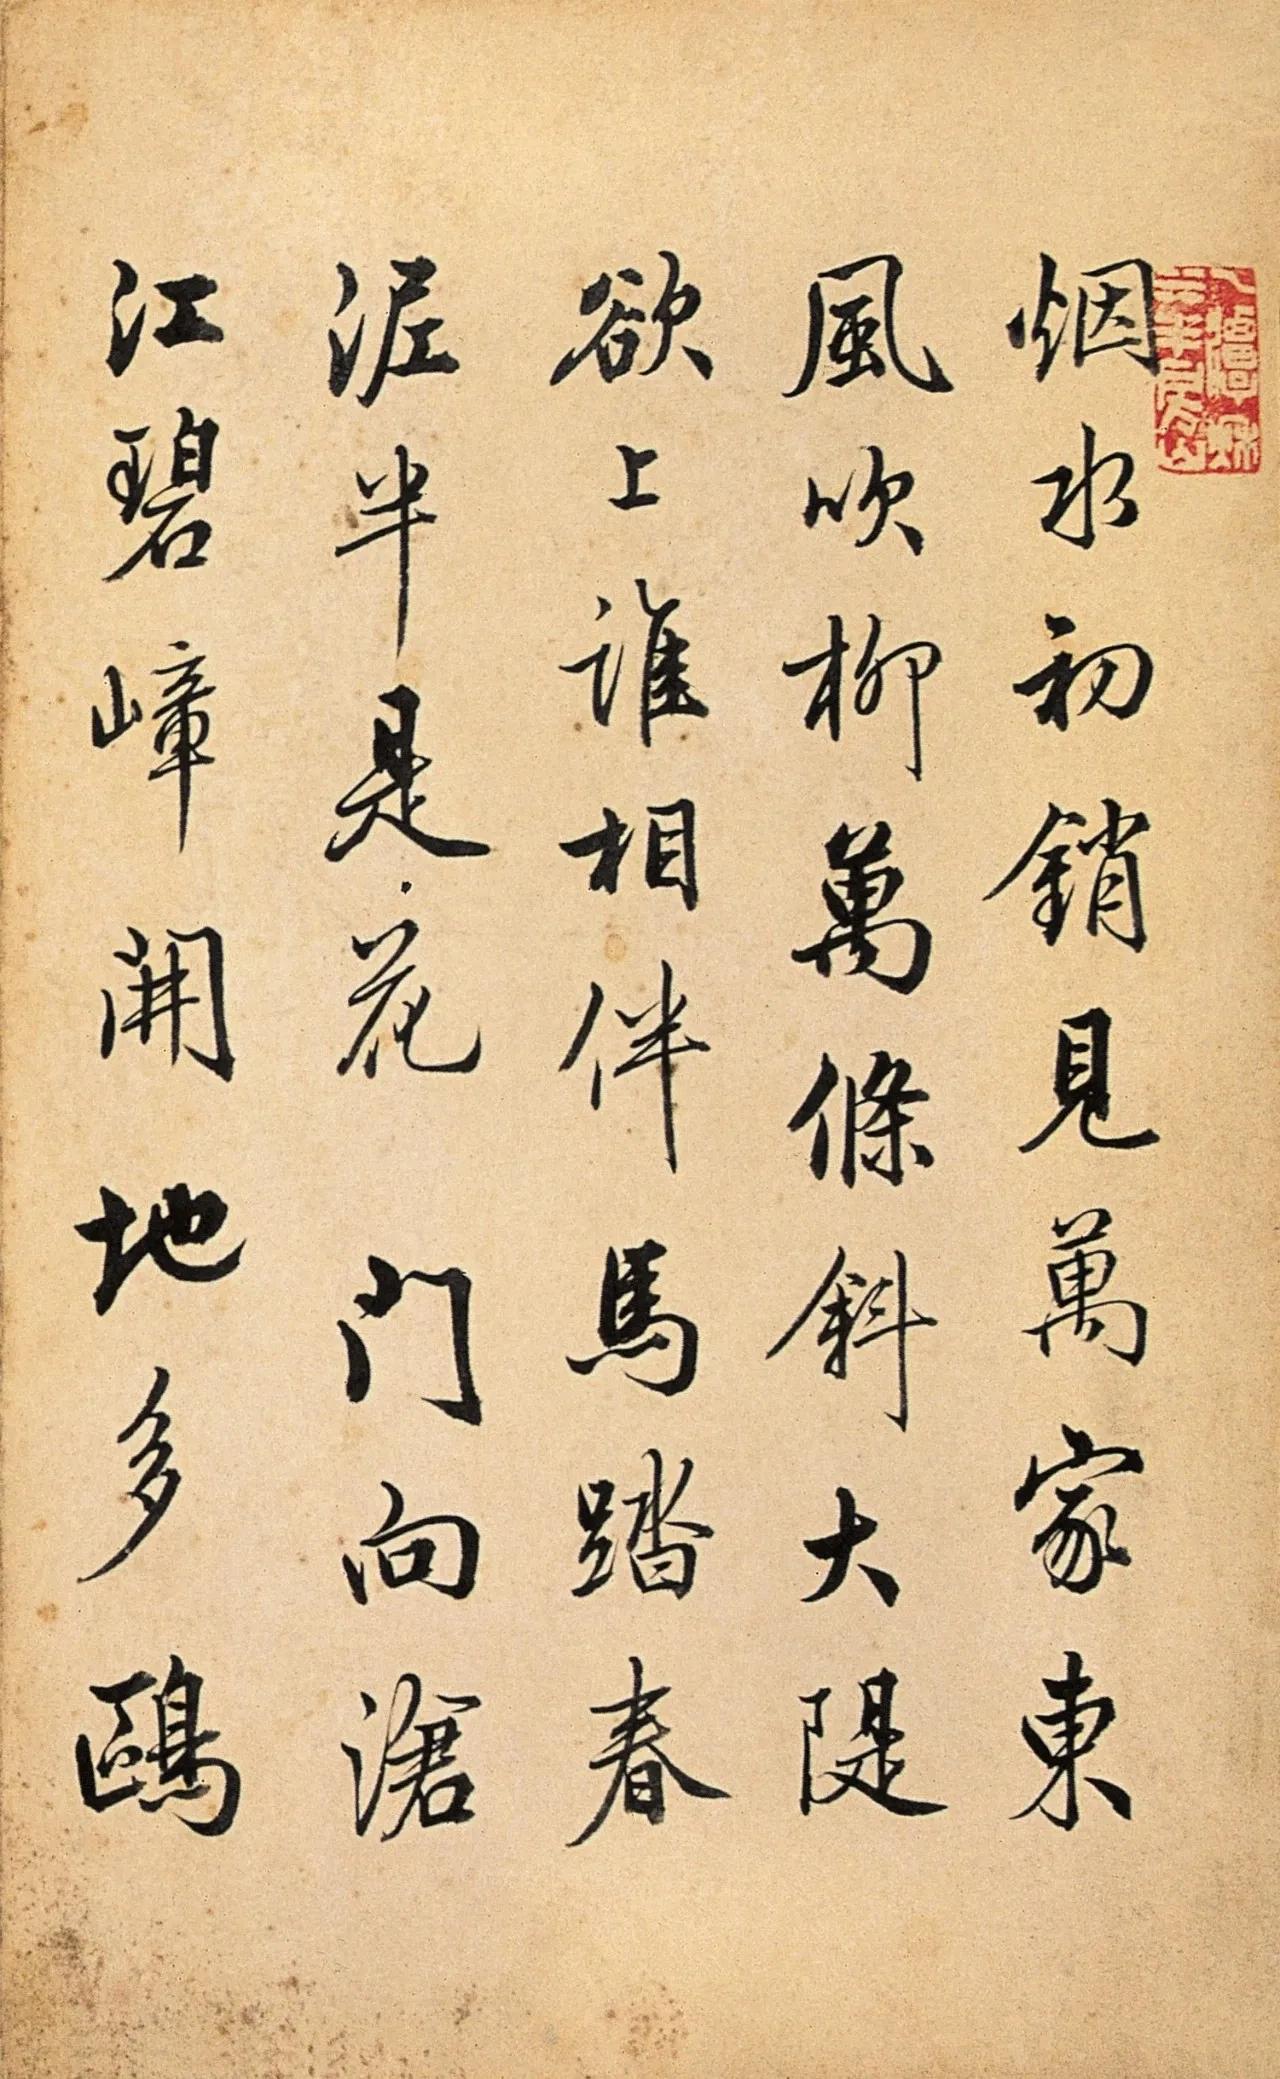 烟水初銷見萬家東
風吹柳萬條斜大隄
欲上誰相伴馬踏春
泥半是花門向滄
江碧嶂開地多鷗